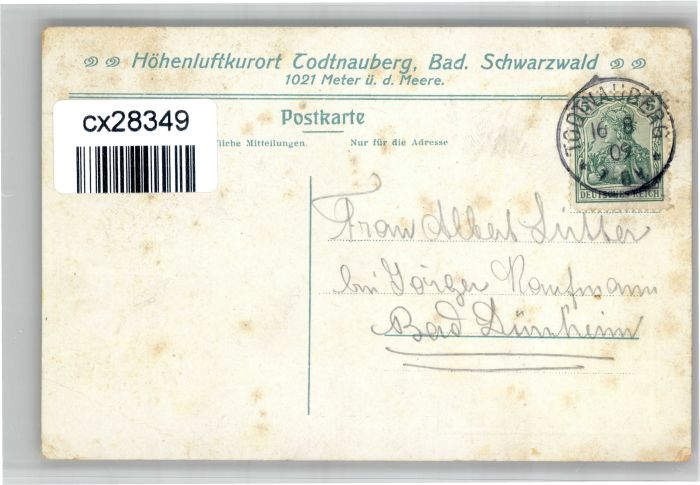 Höhenluftkurort Todtnauberg, Bad. Schwarzwald
1021 Meter ü. d. Meere.
cx28349
Postkarte
liche Mitteilungen.
Nur für die Adresse
TODTNAUBERG
16 8
09
DEUTSCHES REICH
Frau Albert Sutter
bei Jörger Kaufmann
Bad Dürrheim